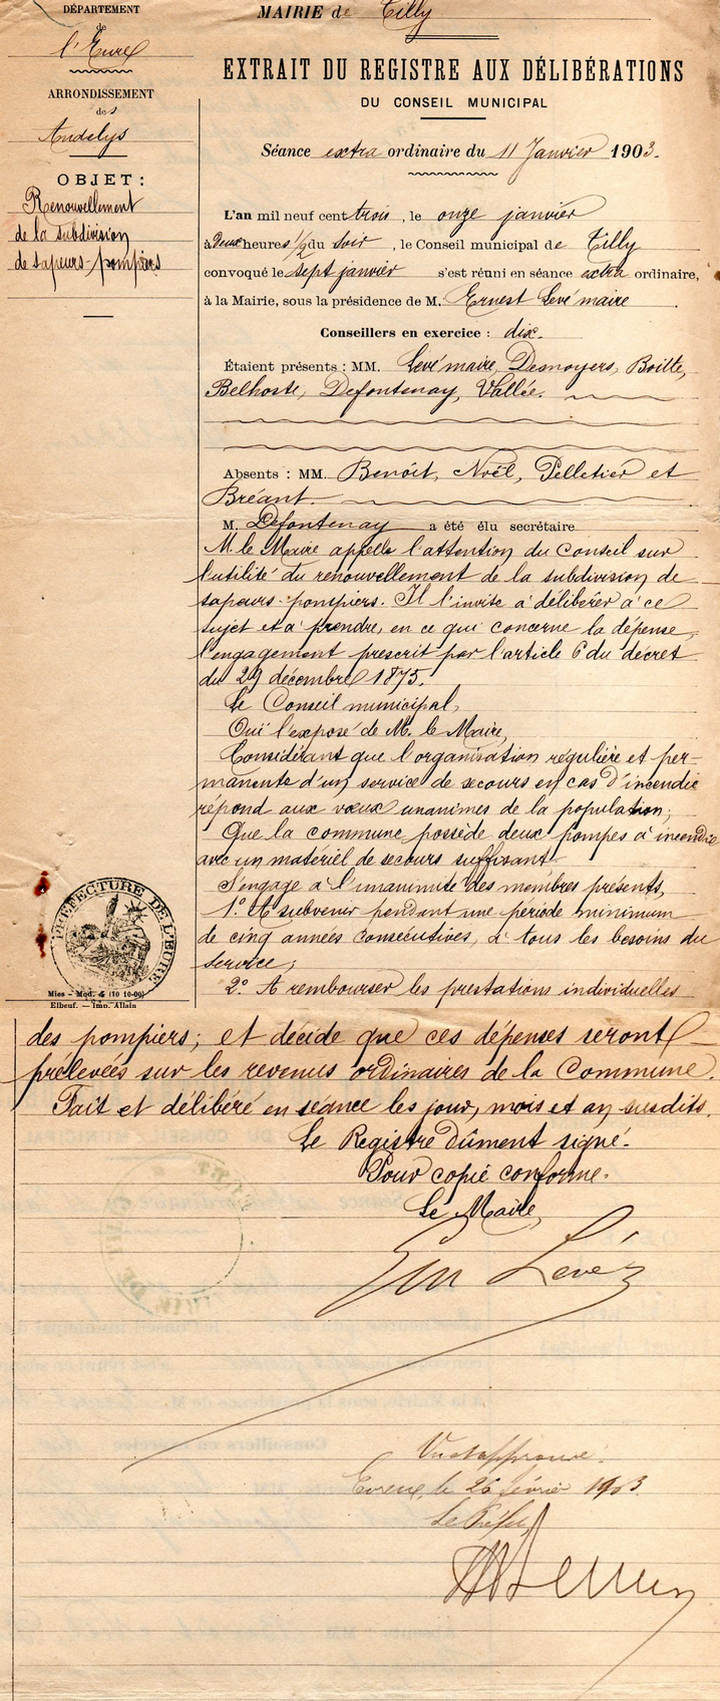 DÉPARTEMENT
de
l'Eure
ARRONDISSEMENT
des
Andelys
OBJET :
Renouvellement
de la subdivision
de sapeurs-pompiers
MAIRIE de Tilly
EXTRAIT DU REGISTRE AUX DÉLIBÉRATIONS
DU CONSEIL MUNICIPAL
Séance extra ordinaire du 11 Janvier 1903.
L'an mil neuf cent trois, le onze janvier
à Deux heures 1/2 du soir, le Conseil municipal de Tilly
convoqué le sept janvier s'est réuni en séance extra ordinaire,
à la Mairie, sous la présidence de M. Ernest Levé maire
Conseillers en exercice : dix.
Étaient présents : MM. Levé maire, Desnoyers, Boitte,
Belhoste, Defontenay, Vallée.
Absents : MM. Benoît, Noël, Pelletier et
Bréant.
M. Defontenay a été élu secrétaire
M. le Maire appelle l'attention du Conseil sur
l'utilité du renouvellement de la subdivision de
sapeurs-pompiers. Il l'invite à délibérer à ce
sujet et à prendre, en ce qui concerne la dépense,
l'engagement prescrit par l'article 6 du décret
du 29 décembre 1875.
Le Conseil municipal,
Ouï l'exposé de M. le Maire,
Considérant que l'organisation régulière et per-
manente d'un service de secours en cas d'incendie
répond aux vœux unanimes de la population;
Que la commune possède deux pompes à incendie
avec un matériel de secours suffisant
S'engage à l'unanimité des membres présents,
1º A subvenir pendant une période minimum
de cinq années consécutives, à tous les besoins du
service;
2º A rembourser les prestations individuelles
PRÉFECTURE DE L'EURE
Mies - Mod. 4 (10 10-00)
Elbeuf. — Imp. Allain
des pompiers; et décide que ces dépenses seront
prélevées sur les revenus ordinaires de la Commune.
Fait et délibéré en séance les jour, mois et an susdits.
Le Registre dûment signé.
Pour copie conforme.
Le Maire,
Ern Levé
Vu et approuvé.
Evreux, le 26 février 1903
Le Préfet,